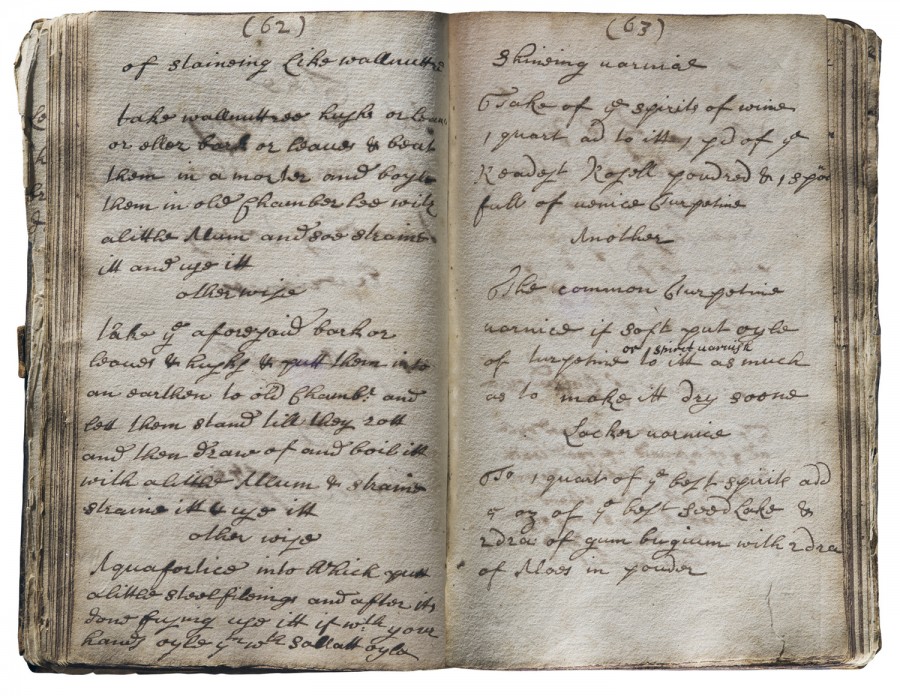 (62)
of staineing like wallnuttre
take wallnuttree husks or leaus
or eller bark or leaues & beat
them in a morter and boyle
them in old Chamber lee with
a little Alum and soe straine
itt and use itt
other wise
take ye aforesaid bark or
leaues & husks & putt them into
an earthen to old Chambr and
lett them stand till they rott
and then draw of and boil itt
with a little Allum & straine
straine itt & use itt
other wise
Aquafortice into Which putt
a little steelfileings and after its
done fusing use itt if wth your
hands oyle ym wth Sallatt oyle
(63)
Shineing uarnice
Take of ye spirits of wine
1 quart ad to itt 1 pd of ye
Readest Rosell powdred & 1 spoo
full of uenice Turpetine
Another
The common Turpetine
uarnice if soft put oyle
or spirit varnish
of turpetine to itt as much
as to make itt dry soone
Locker uarnice
To 1 quart of ye best spirits add
oz of ye best seed Lake &
2 dra of gum bugium with 2 dra
of Aloes in pouder